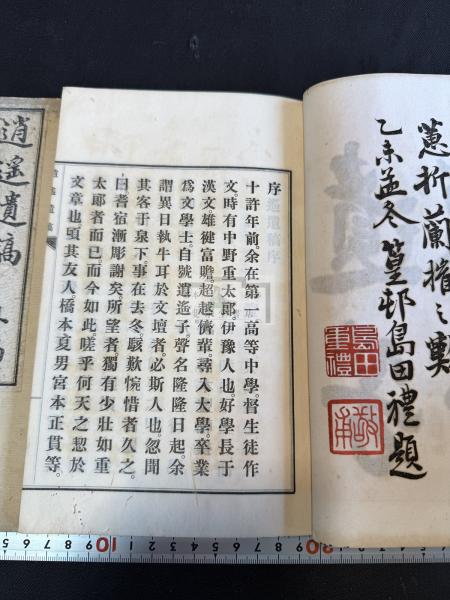 蔥折蘭摧之歎
乙未孟冬篁邨島田禮題
島田重禮
敬甫
序
十許年前。余在第一高等中學。督生徒作
文。時有中野重太郎。伊豫人也。好學長于
漢文。雄健富贍。超越儕輩。尋入大學。卒業
爲文學士。自號逍遙子。聲名隆隆日起。余
謂異日執牛耳於文壇者。必斯人也。忽聞
其客于泉下。事在去冬。駭歎惋惜者久之。
曰。耆宿漸彫謝矣。所望者獨有少壯如重
太郎者而已。而今如此。嗟乎何天之忍於
文章也。頃其友人。橋本夏男宮本正貫等。
逍遙遺稿